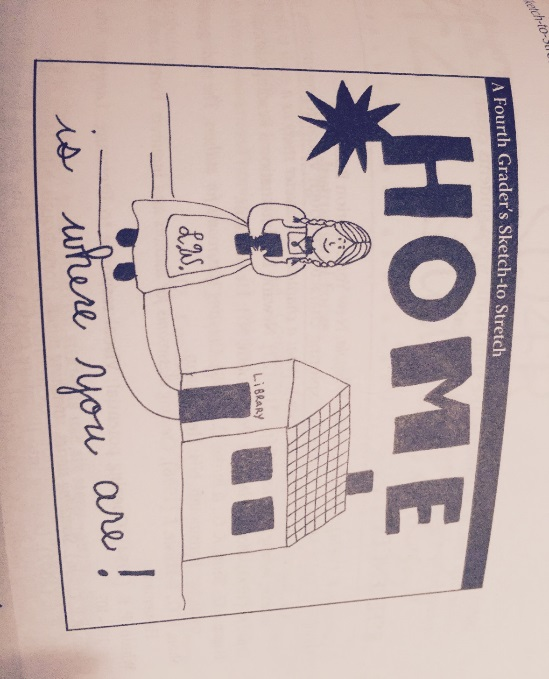 A Fourth Grader's Sketch-to Stretch
HOME
L.W.
LiBRARY
is where you are!